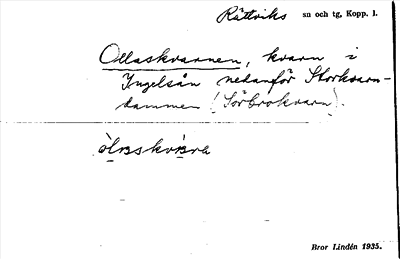 Rättviks sn och tg, Kopp. l.
Ollaskvarnen, kvarn i
Ingelsån nedanför Storkvarn-
dammen (Sörbrokvarn).
Bror Lindén 1935.